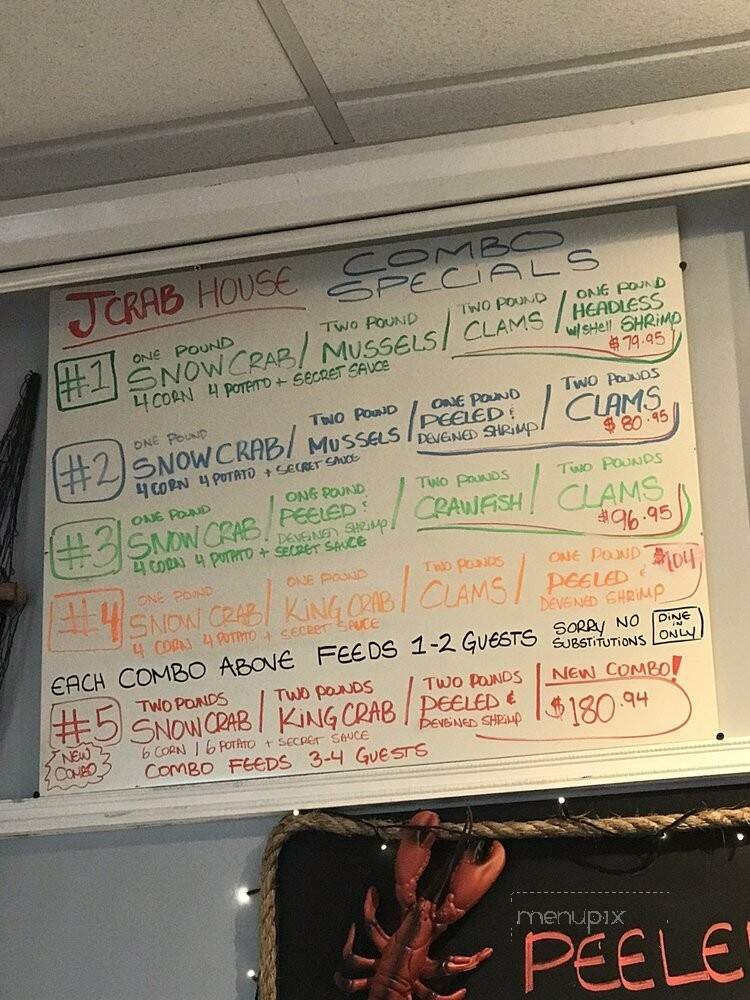 JCRAB HOUSE COMBO SPECIALS
#1 ONE POUND SNOW CRAB / TWO POUND MUSSELS / TWO POUND CLAMS / ONE POUND HEADLESS W/SHELL SHRIMP $79.95
4 CORN 4 POTATO + SECRET SAUCE
#2 ONE POUND SNOW CRAB / TWO POUND MUSSELS / ONE POUND PEELED & DEVEINED SHRIMP / TWO POUNDS CLAMS $80.95
4 CORN 4 POTATO + SECRET SAUCE
#3 ONE POUND SNOW CRAB / ONE POUND PEELED & DEVEINED SHRIMP / TWO POUNDS CRAWFISH / TWO POUNDS CLAMS $96.95
4 CORN 4 POTATO + SECRET SAUCE
#4 ONE POUND SNOW CRAB / ONE POUND KING CRAB / TWO POUNDS CLAMS / ONE POUND PEELED & DEVEINED SHRIMP $104
4 CORN 4 POTATO + SECRET SAUCE
EACH COMBO ABOVE FEEDS 1-2 GUESTS SORRY NO SUBSTITUTIONS DINE IN ONLY
#5 TWO POUNDS SNOW CRAB / TWO POUNDS KING CRAB / TWO POUNDS PEELED & DEVEINED SHRIMP / NEW COMBO! $180.94
6 CORN / 6 POTATO + SECRET SAUCE
NEW COMBO COMBO FEEDS 3-4 GUESTS
menupix
PEELE